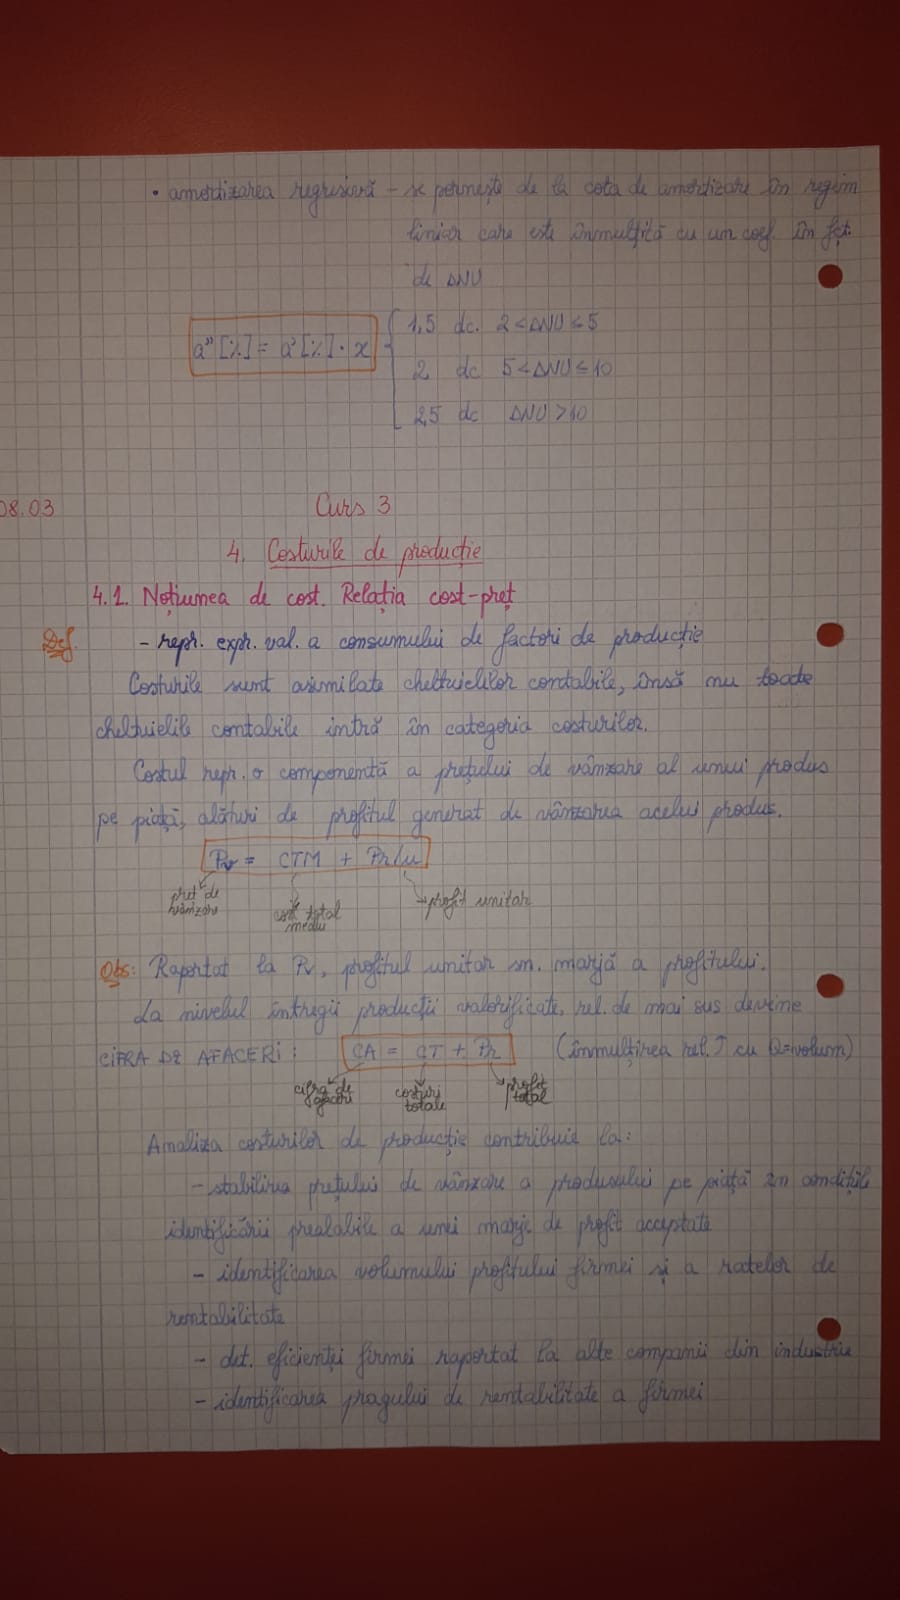 • amortizarea regresivă - se pornește de la cota de amortizare în regim
liniar care este înmulțită cu un coef. în fcț.
de DNU
a" [%] = a' [%] · x { 1,5 dc. 2 < DNU ≤ 5
2 dc 5 < DNU ≤ 10
2,5 dc DNU > 10
Curs 3
08.03
4. Costurile de producție
4.1. Noțiunea de cost. Relația cost-preț
Def. - repr. expr. val. a consumului de factori de producție
Costurile sunt asimilate cheltuielilor contabile, însă nu toate
cheltuielile contabile intră în categoria costurilor.
Costul repr. o componentă a prețului de vânzare al unui produs
pe piață, alături de profitul generat de vânzarea acelui produs.
Pv = CTM + Pr/u
preț de vânzare
cost total mediu
→ profit unitar
Obs: Raportat la Pv, profitul unitar sn. marjă a profitului.
La nivelul întregii producții valorificate, rel. de mai sus devine
CIFRA DE AFACERI: CA = CT + Pr (înmulțirea rel. ↑ cu Q=volum)
cifra de afaceri
costuri totale
profit total
Analiza costurilor de producție contribuie la:
- stabilirea prețului de vânzare a produsului pe piață în condițiile
identificării prealabile a unei marje de profit acceptate
- identificarea volumului profitului firmei și a ratelor de
rentabilitate
- det. eficienței firmei raportat la alte companii din industrie
- identificarea pragului de rentabilitate a firmei